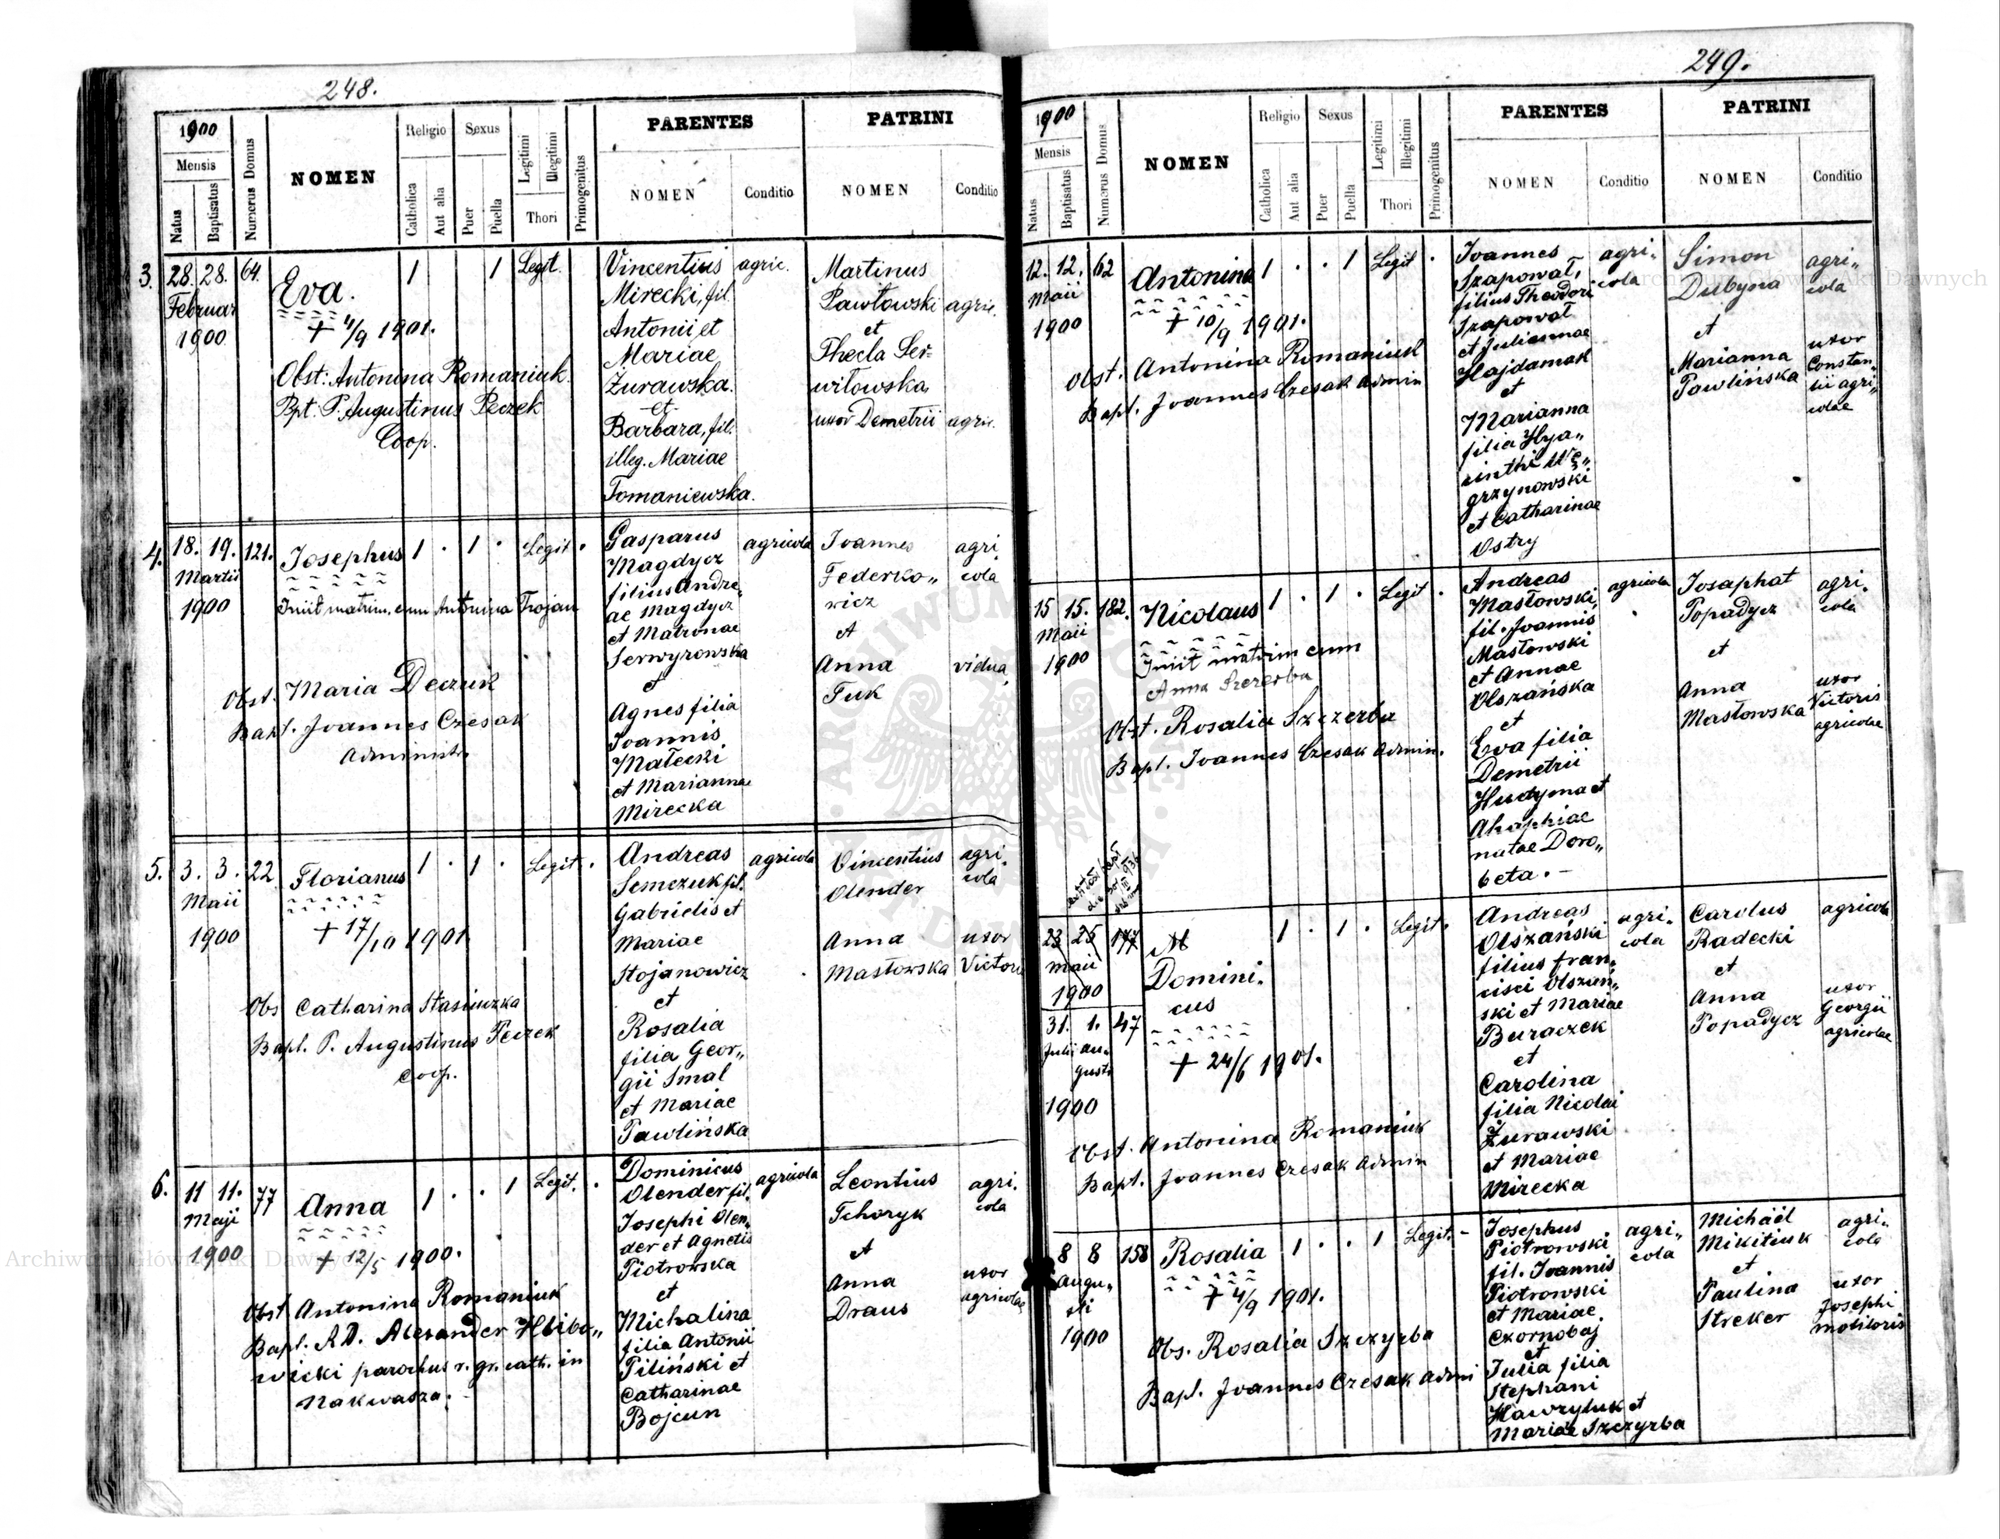 248.
1900
Mensis
Natus
Baptisatus
Numerus Domus
NOMEN
Religio
Catholica
Aut alia
Sexus
Puer
Puella
Legitimi
Illegitimi
Thori
Primogenitus
PARENTES
NOMEN
Conditio
PATRINI
NOMEN
Conditio
3. 28. 28. 64.
Februar
1900
Eva.
+ 4/9 1901.
Obst: Antonina Romaniuk.
Bpt: P. Augustinus Peczek
Coop.
1 1 Legit.
Vincentius
Mirecki, fil.
Antonii et
Mariae
Żurawska.
et
Barbara, fil.
illeg. Mariae
Tomaniewska.
agric.
Martinus
Pawłowski agric.
et
Thecla Ser-
wiłowska
uxor Demetrii agric.
4. 18. 19. 121.
Martii
1900
Josephus
Iniit matrim. cum Antonina Trojan
Obst. Maria Deczuk
Bapt. Joannes Czesak
Administr.
1 . 1 . Legit .
Gasparus
Magdycz
filius Andre-
ae Magdycz
et Matronae
Serwyrowska
et
Agnes filia
Joannis
Małecki
et Mariannae
Mirecka
agricola
Joannes
Federko„
wicz
et
Anna
Tuk
agri
cola
vidua
5. 3. 3. 22
Maii
1900
Florianus
+ 17/10 1901.
Obs Catharina Stasiuczka
Bapt. P. Augustinus Peczek
Coop.
1 . 1 . Legit .
Andreas
Semczuk fil.
Gabrielis et
Mariae
Stojanowicz
et
Rosalia
filia Geor„
gii Smal
et Mariae
Pawlińska
agricola
Vincentius
Olender
Anna
Masłowska
agri.
cola
uxor
Victoris
6. 11 11. 77
Maji
1900
Anna
+ 12/5 1900.
Obst Antonina Romaniuk
Bapt. A.D. Alexander Hlibo„
wicki parochus r. gr. cath. in
Nakwasza.
1 . . 1 Legit. .
Dominicus
Olender fil.
Josephi Olen-
der et Agnetis
Piotrowska
et
Michalina
filia Antonii
Piliński et
Catharinae
Bojcun
agricola
Leontius
Tchoryk
et
Anna
Draus
agri.
cola
uxor
agricolae
249.
1900
Mensis
Natus
Baptisatus
Numerus Domus
NOMEN
Religio
Catholica
Aut alia
Sexus
Puer
Puella
Legitimi
Illegitimi
Thori
Primogenitus
PARENTES
NOMEN
Conditio
PATRINI
NOMEN
Conditio
12. 12. 62
Maii
1900
Antonina
+ 10/9 1901.
Obst. Antonina Romaniuk
Bapt. Joannes Czesak Admin
1 . . 1 Legit .
Joannes
Szapował,
filius Theodori
Szapował
et Juliannae
Hajdamak
et
Marianna
filia Hya„
cinthi Wę„
grzynowski
et Catharinae
Ostry
agri„
cola
Simon
Dubyna
et
Marianna
Pawlińska
agri„
cola
uxor
Constan„
tii agri„
colae
15 15. 182.
Maii
1900
Nicolaus
Iniit matrim cum
Anna Szczerba
Obst. Rosalia Szczerba
Bapt. Joannes Czesak Admin.
1 . 1 . Legit .
Andreas
Masłowski,
fil. Joannis
Masłowski
et Annae
Olszańska
et
Eva filia
Demetrii
Hudyma et
Ahaphiae
natae Doro„
beta. -
agricola
Josaphat
Popadycz
et
Anna
Masłowska
agri-
cola
uxor
Victoris
agricolae
23 25 177
Maii
1900
31. 1. 47
Julii au-
gusti
1900
Domini.
cus
+ 24/6 1901.
Obst. Antonina Romaniuk
Bapt. Joannes Czesak Admin
1 . 1 . Legit .
Andreas
Olszański
filius Fran„
cisci Olszań„
ski et Mariae
Buraczek
et
Carolina
filia Nicolai
Żurawski
et Mariae
Mirecka
agri-
cola
Carolus
Radecki
et
Anna
Popadycz
agricola
uxor
Georgii
agricolae
8 8 158
Augu„
sti
1900
Rosalia
+ 4/9 1901.
Obs. Rosalia Szczyrba
Bapt. Joannes Czesak Admi
1 . . 1 Legit. -
Josephus
Piotrowski
fil. Joannis
Piotrowski
et Mariae
Czornobaj
et
Julia filia
Stephani
Hawryluk et
Mariae Szczyrba
agri„
cola
Michael
Mikitiuk
et
Paulina
Streker
agri„
cola
uxor
Josephi
molitoris
Archiwum Główne Akt Dawnych
Archiwum Główne Akt Dawnych
ARCHIWUM GŁÓWNE AKT DAWNYCH